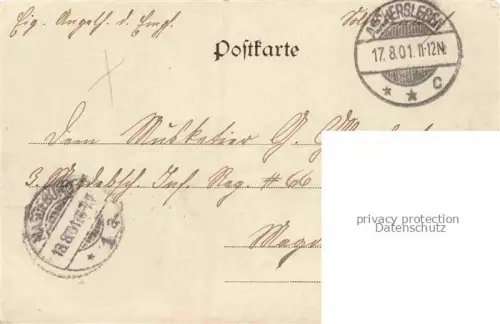 Eig. Angelh. d. Empf.
Postkarte
ASCHERSLEBEN
17.8.01.11-12N.
* * c
Dem Musketier G.
3. Magdebsch. Inf. Reg. # 66
MAGDEBURG
18.8.01
* 1 a.
Magd
privacy protection
Datenschutz